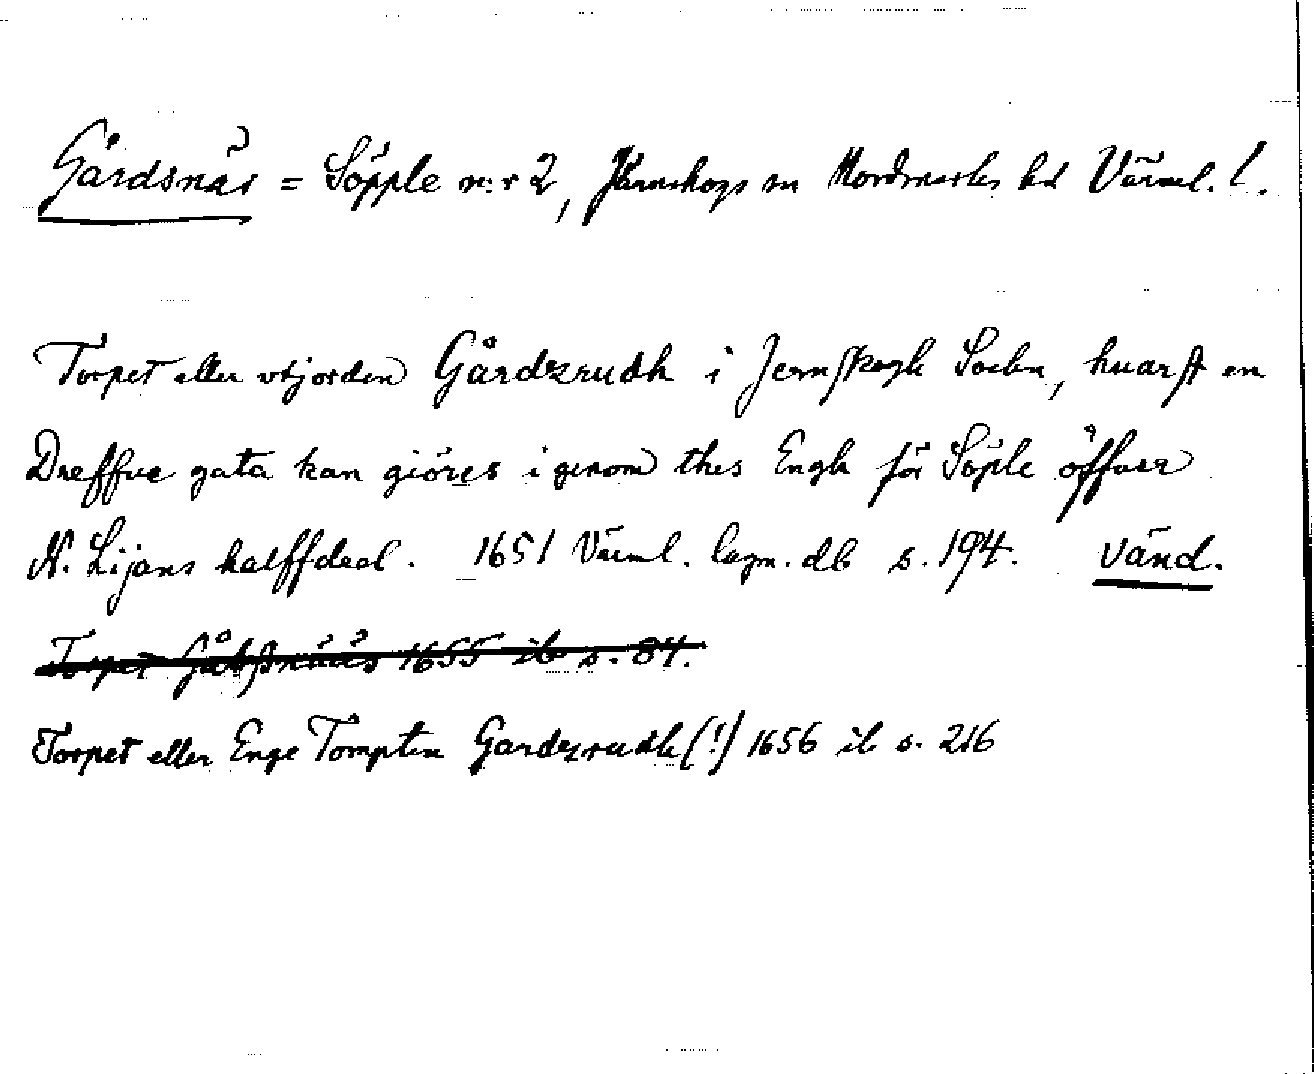 Gårdsnäs = Söpple n:r 2, Järnskogs sn Nordmarks hd Värml. l.
Torpet eller vtjorden Gårdzrudh i Jernskogh Sochn, huarst en
Dreffue gata kan giöres igenom thes Engh för Söple öffuer
N. Lijans halffdeel. 1651 Värml. lagm. db s. 194. Vänd.
Torpet Gårdßnääs 1655 ib s. 84.
Torpet eller Enge Tompten Gardzrudh (!) 1656 ib s. 216